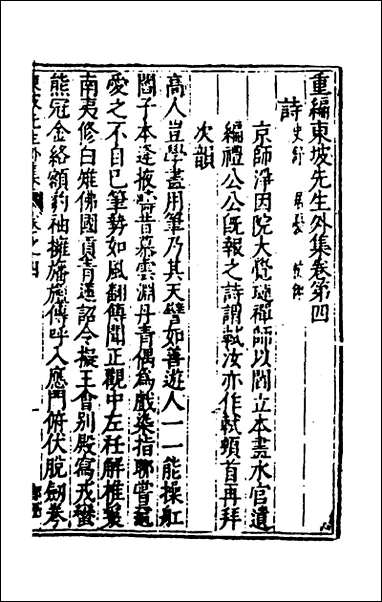 重編東坡先生外集卷第四
詩
京師淨因院大覺璉禪師以閻立本畫水官遺
編禮公公旣報之詩謂軾汝亦作軾頓首再拜
次韻
高人豈學畫用筆乃其天譬如善遊人一一能操舡
閻子本逢掖疇昔慕雲淵丹青偶為戲染指聊嘗黿
愛之不自已筆勢如風翻傳聞正觀中左衽解椎鬟
南夷修白雉佛國貢青蓮詔令擬王會別殿寫戎蠻
熊冠金絡額豹袖擁旛旃傳呼入應門俯伏脫劍卷